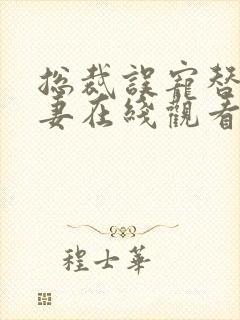 总裁误宠替
妻在线观看
程士华